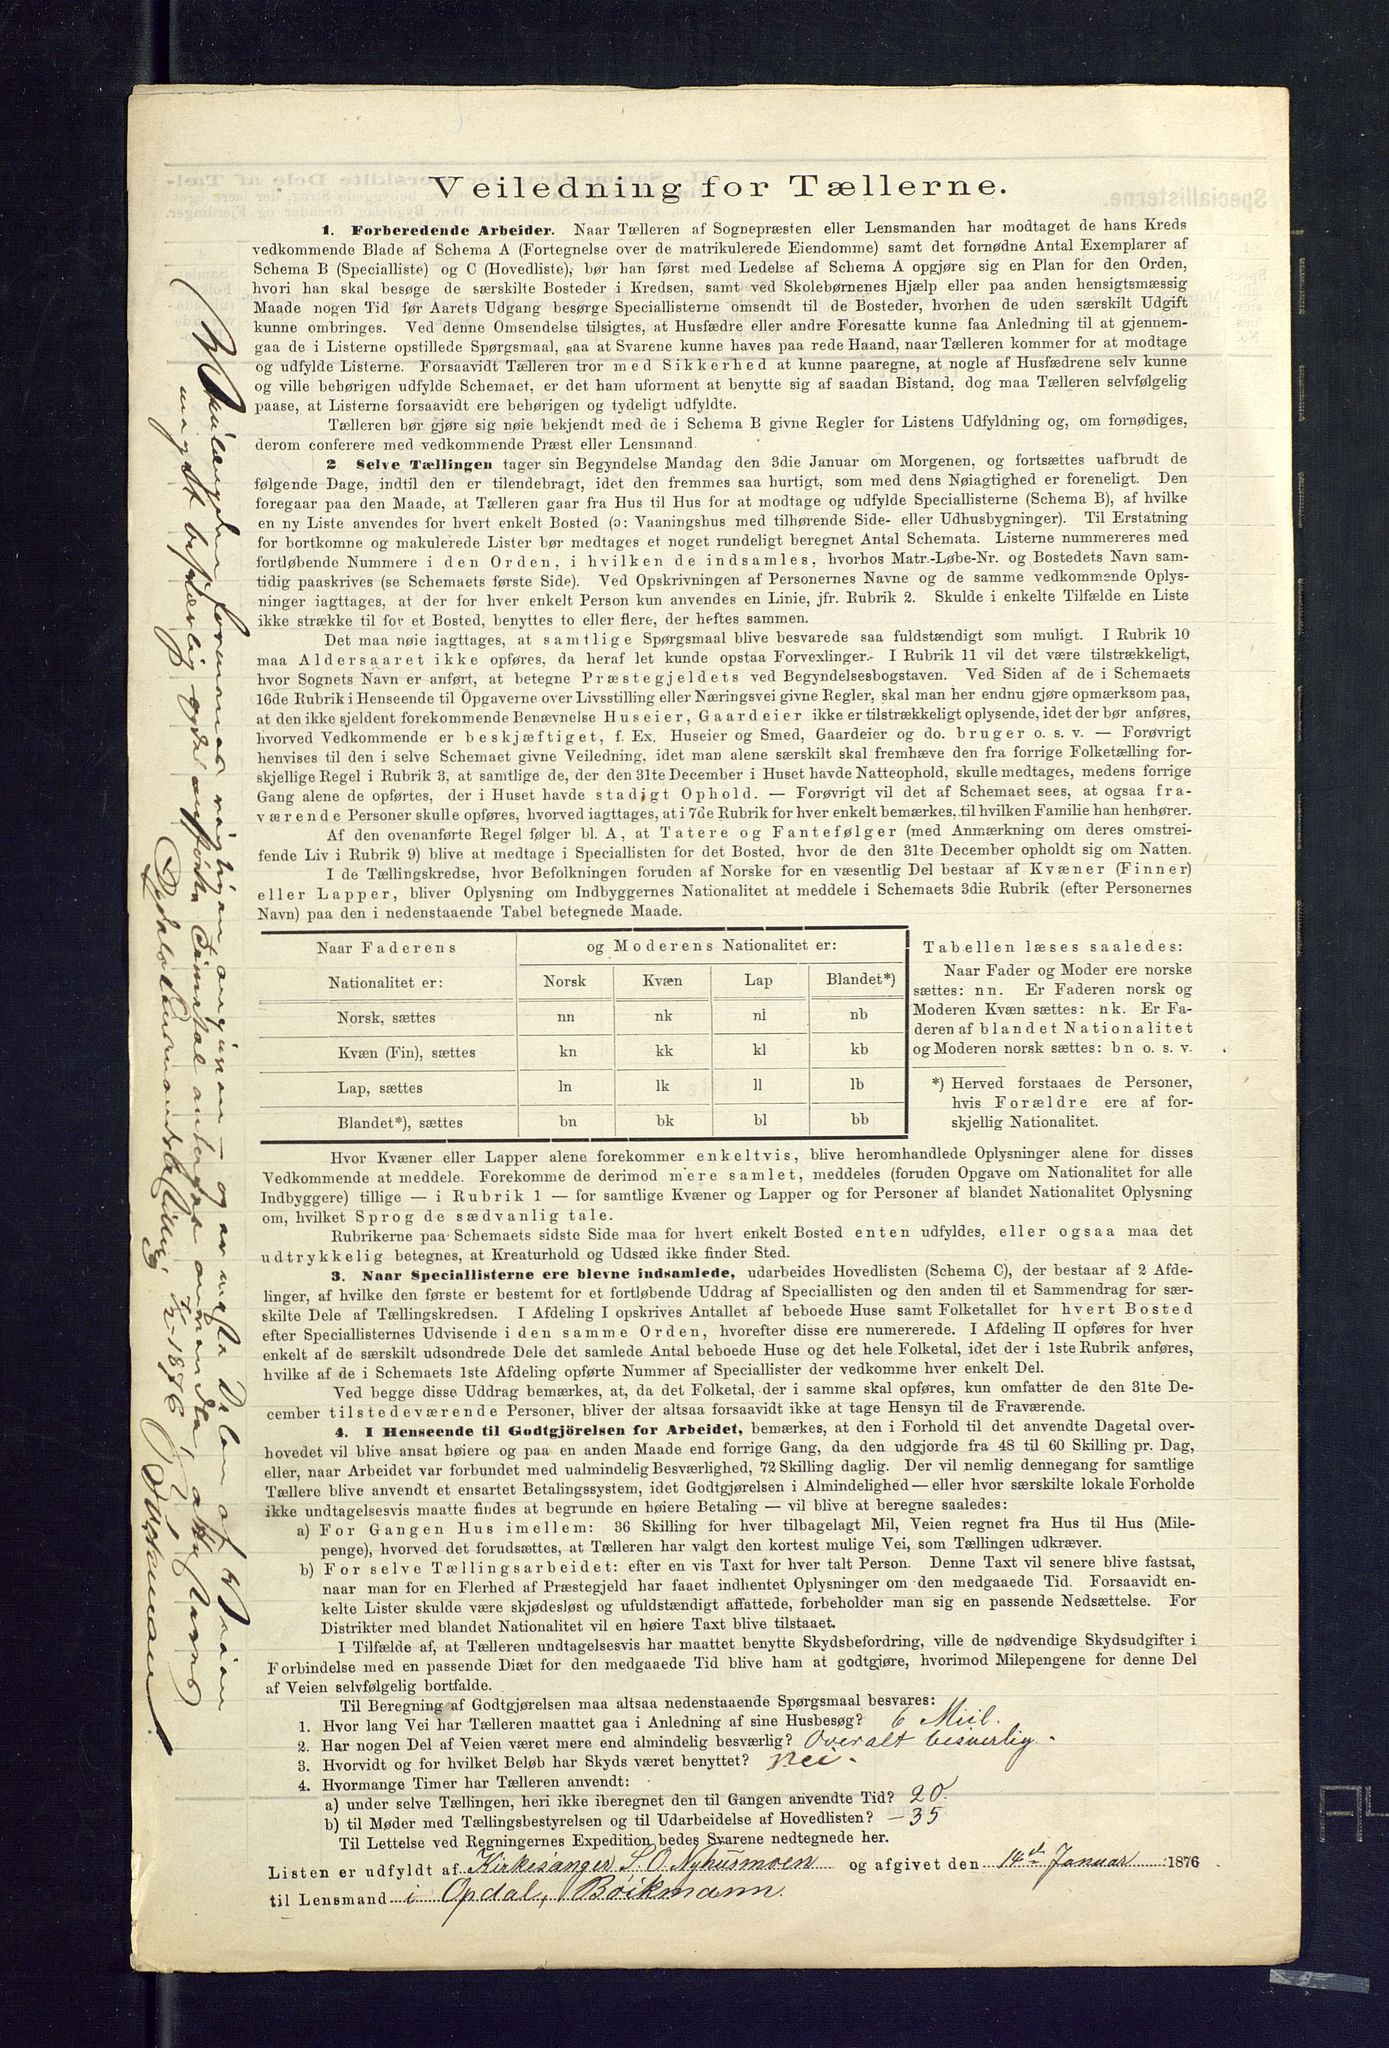 Veiledning for Tællerne.
1. Forberedende Arbeider. Naar Tælleren af Sognepræsten eller Lensmanden har modtaget de hans Kreds
vedkommende Blade af Schema A (Fortegnelse over de matrikulerede Eiendomme) samt det fornødne Antal Exemplarer af
Schema B (Specialliste) og C (Hovedliste), bør han først med Ledelse af Schema A opgjøre sig en Plan for den Orden,
hvori han skal besøge de særskilte Bosteder i Kredsen, samt ved Skolebørnenes Hjælp eller paa anden hensigtsmæssig
Maade nogen Tid før Aarets Udgang besørge Speciallisterne omsendt til de Bosteder, hvorhen de uden særskilt Udgift
kunne ombringes. Ved denne Omsendelse tilsigtes, at Husfædre eller andre Foresatte kunne faa Anledning til at gjennem-
gaa de i Listerne opstillede Spørgsmaal, saa at Svarene kunne haves paa rede Haand, naar Tælleren kommer for at modtage
og udfylde Listerne. Forsaavidt Tælleren tror med Sikkerhed at kunne paaregne, at nogle af Husfædrene selv kunne
og ville behørigen udfylde Schemaet, er det ham uforment at benytte sig af saadan Bistand, dog maa Tælleren selvfølgelig
paase, at Listerne forsaavidt ere behørigen og tydeligt udfyldte.
Tælleren bør gjøre sig nøie bekjendt med de i Schema B givne Regler for Listens Udfyldning og, om fornødiges,
derom conferere med vedkommende Præst eller Lensmand.
2 Selve Tællingen tager sin Begyndelse Mandag den 3die Januar om Morgenen, og fortsættes uafbrudt de
følgende Dage, indtil den er tilendebragt, idet den fremmes saa hurtigt, som med dens Nøiagtighed er foreneligt. Den
foregaar paa den Maade, at Tælleren gaar fra Hus til Hus for at modtage og udfylde Speciallisterne (Schema B), af hvilke
en ny Liste anvendes for hvert enkelt Bosted (ɔ: Vaaningshus med tilhørende Side- eller Udhusbygninger). Til Erstatning
for bortkomne og makulerede Lister bør medtages et noget rundeligt beregnet Antal Schemata. Listerne nummereres med
fortløbende Nummere i den Orden, i hvilken de indsamles, hvorhos Matr.-Løbe-Nr. og Bostedets Navn sam-
tidig paaskrives (se Schemaets første Side). Ved Opskrivningen af Personernes Navne og de samme vedkommende Oplys-
ninger iagttages, at der for hver enkelt Person kun anvendes en Linie, jfr. Rubrik 2. Skulde i enkelte Tilfælde en Liste
ikke strække til for et Bosted, benyttes to eller flere, der heftes sammen.
Det maa nøie iagttages, at samtlige Spørgsmaal blive besvarede saa fuldstændigt som muligt. I Rubrik 10
maa Aldersaaret ikke opføres, da heraf let kunde opstaa Forvexlinger. I Rubrik 11 vil det være tilstrækkeligt,
hvor Sognets Navn er anført, at betegne Præstegjeldets ved Begyndelsesbogstaven. Ved Siden af de i Schemaets
16de Rubrik i Henseende til Opgaverne over Livsstilling eller Næringsvei givne Regler, skal man her endnu gjøre opmærksom paa,
at den ikke sjeldent forekommende Benævnelse Huseier, Gaardeier ikke er tilstrækkeligt oplysende, idet der bør anføres,
hvorved Vedkommende er beskjæftiget, f. Ex. Huseier og Smed, Gaardeier og do. bruger o. s. v. — Forøvrigt
henvises til den i selve Schemaet givne Veiledning, idet man alene særskilt skal fremhæve den fra forrige Folketælling for-
skjellige Regel i Rubrik 3, at samtlige de, der den 31te December i Huset havde Natteophold, skulle medtages, medens forrige
Gang alene de opførtes, der i Huset havde stadigt Ophold. — Forøvrigt vil det af Schemaet sees, at ogsaa fra-
værende Personer skulle opføres, hvorved iagttages, at i 7de Rubrik for hver enkelt bemærkes, til hvilken Familie han henhører.
Af den ovenanførte Regel følger bl. A, at Tatere og Fantefølger (med Anmærkning om deres omstrei-
fende Liv i Rubrik 9) blive at medtage i Speciallisten for det Bosted, hvor de den 31te December opholdt sig om Natten.
I de Tællingskredse, hvor Befolkningen foruden af Norske for en væsentlig Del bestaar af Kvæner (Finner)
eller Lapper, bliver Oplysning om Indbyggernes Nationalitet at meddele i Schemaets 3die Rubrik (efter Personernes
Navn) paa den i nedenstaaende Tabel betegnede Maade.
Naar Faderens og Moderens Nationalitet er:
Nationalitet er: Norsk Kvæn Lap Blandet*)
Norsk, sættes nn nk nl nb
Kvæn (Fin), sættes kn kk kl kb
Lap, sættes ln lk ll lb
Blandet*), sættes bn bk bl bb
Tabellen læses saaledes:
Naar Fader og Moder ere norske
sættes: nn. Er Faderen norsk og
Moderen Kvæn sættes: nk. Er Fa-
deren af blandet Nationalitet
og Moderen norsk sættes: bn o. s. v.
*) Herved forstaaes de Personer,
hvis Forældre ere af for-
skjellig Nationalitet.
Hvor Kvæner eller Lapper alene forekommer enkeltvis, blive heromhandlede Oplysninger alene for disses
Vedkommende at meddele. Forekomme de derimod mere samlet, meddeles (foruden Opgave om Nationalitet for alle
Indbyggere) tillige — i Rubrik 1 — for samtlige Kvæner og Lapper og for Personer af blandet Nationalitet Oplysning
om, hvilket Sprog de sædvanlig tale.
Rubrikerne paa Schemaets sidste Side maa for hvert enkelt Bosted enten udfyldes, eller ogsaa maa det
udtrykkelig betegnes, at Kreaturhold og Udsæd ikke finder Sted.
3. Naar Speciallisterne ere blevne indsamlede, udarbeides Hovedlisten (Schema C), der bestaar af 2 Afde-
linger, af hvilke den første er bestemt for et fortløbende Uddrag af Speciallisten og den anden til et Sammendrag for sær-
skilte Dele af Tællingskredsen. I Afdeling I opskrives Antallet af beboede Huse samt Folketallet for hvert Bosted
efter Speciallisternes Udvisende i den samme Orden, hvorefter disse ere numererede. I Afdeling II opføres for hver
enkelt af de særskilt udsondrede Dele det samlede Antal beboede Huse og det hele Folketal, idet der i 1ste Rubrik anføres,
hvilke af de i Schemaets 1ste Afdeling opførte Nummer af Speciallister der vedkomme hver enkelt Del.
Ved begge disse Uddrag bemærkes, at, da det Folketal, der i samme skal opføres, kun omfatter de den 31te De-
cember tilstedeværende Personer, bliver der altsaa forsaavidt ikke at tage Hensyn til de Fraværende.
4. I Henseende til Godtgjörelsen for Arbeidet, bemærkes, at den i Forhold til det anvendte Dagetal over-
hovedet vil blive ansat høiere og paa en anden Maade end forrige Gang, da den udgjorde fra 48 til 60 Skilling pr. Dag,
eller, naar Arbeidet var forbundet med ualmindelig Besværlighed, 72 Skilling daglig. Der vil nemlig dennegang for samtlige
Tællere blive anvendt et ensartet Betalingssystem, idet Godtgjørelsen i Almindelighed — eller hvor særskilte lokale Forholde
ikke undtagelsesvis maatte findes at begrunde en høiere Betaling — vil blive at beregne saaledes:
a) For Gangen Hus imellem: 36 Skilling for hver tilbagelagt Mil, Veien regnet fra Hus til Hus (Mile-
penge), hvorved det forudsættes, at Tælleren har valgt den kortest mulige Vei, som Tællingen udkræver.
b) For selve Tællingsarbeidet: efter en vis Taxt for hver talt Person. Denne Taxt vil senere blive fastsat,
naar man for en Flerhed af Præstegjeld har faaet indhentet Oplysninger om den medgaaede Tid. Forsaavidt en-
kelte Lister skulde være skjødesløst og ufuldstændigt affattede, forbeholder man sig en passende Nedsættelse. For
Distrikter med blandet Nationalitet vil en høiere Taxt blive tilstaaet.
I Tilfælde af, at Tælleren undtagelsesvis har maattet benytte Skydsbefordring, ville de nødvendige Skydsudgifter i
Forbindelse med en passende Diæt for den medgaaede Tid blive ham at godtgjøre, hvorimod Milepengene for denne Del
af Veien selvfølgelig bortfalde.
Til Beregning af Godtgjørelsen maa altsaa nedenstaaende Spørgsmaal besvares:
1. Hvor lang Vei har Tælleren maattet gaa i Anledning af sine Husbesøg? 6 Miil.
2. Har nogen Del af Veien været mere end almindelig besværlig? Overalt besværlig.
3. Hvorvidt og for hvilket Beløb har Skyds været benyttet? Nei.
4. Hvormange Timer har Tælleren anvendt:
a) under selve Tællingen, heri ikke iberegnet den til Gangen anvendte Tid? 20.
b) til Møder med Tællingsbestyrelsen og til Udarbeidelse af Hovedlisten? — 35
Til Lettelse ved Regningernes Expedition bedes Svarene nedtegnede her.
Listen er udfyldt af Kirkesanger S. O. Nyhusmoen og afgivet den 14de Januar 1876
til Lensmand i Opdal, Böikmann.
Veilængden formenes rigtigen angiven — og er mesta Delen af Veien
meget besværlig og det anførte Timetal antages anvendt,
1876